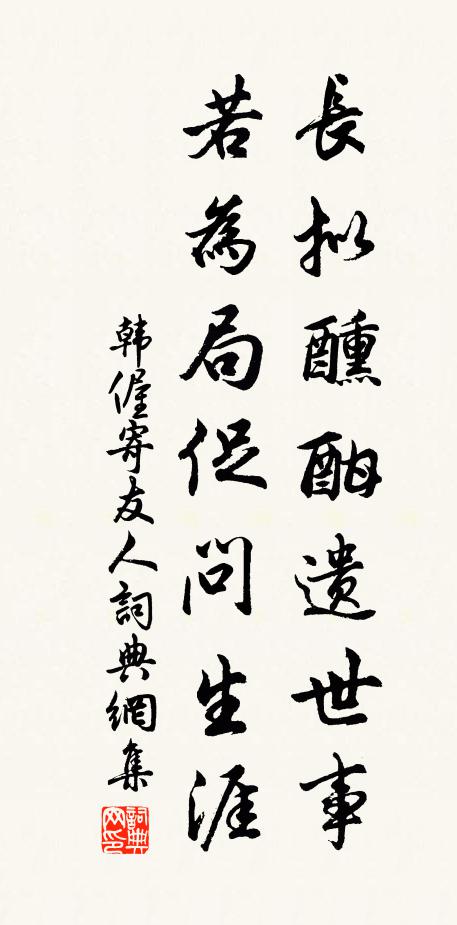 長拟醺酣遗世事
若為局促问生涯
韩偓寄友人詞典網集
詞典
网印